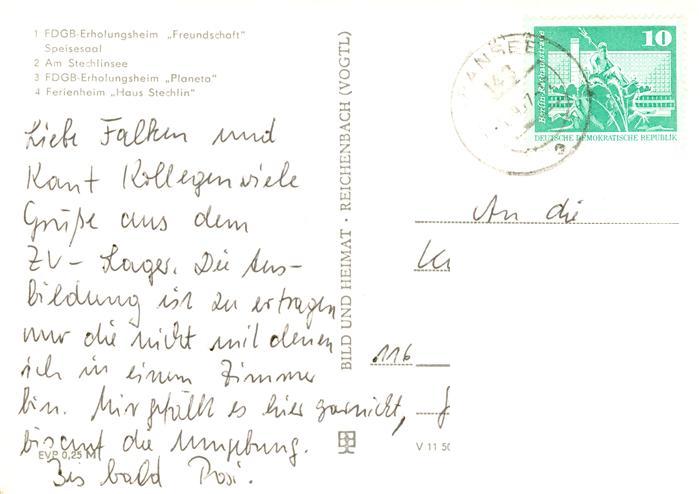 1 FDGB-Erholungsheim „Freundschaft"
Speisesaal
2 Am Stechlinsee
3 FDGB-Erholungsheim „Planeta"
4 Ferienheim „Haus Stechlin"
Liebe Falken und
Kant Kollegen viele
Grüße aus dem
ZV-Lager. Die Aus-
bildung ist zu ertragen
nur die nicht mit denen
ich in einem Zimmer
bin. Mir gefällt es hier garnicht,
bisamt die Umgebung.
Bis bald Rosi.
EVP 0,25 M
BILD UND HEIMAT · REICHENBACH (VOGTL)
V 11 50
ANSEE
143
10
Berlin, Rathausstrasse
DEUTSCHE DEMOKRATISCHE REPUBLIK
An die
116